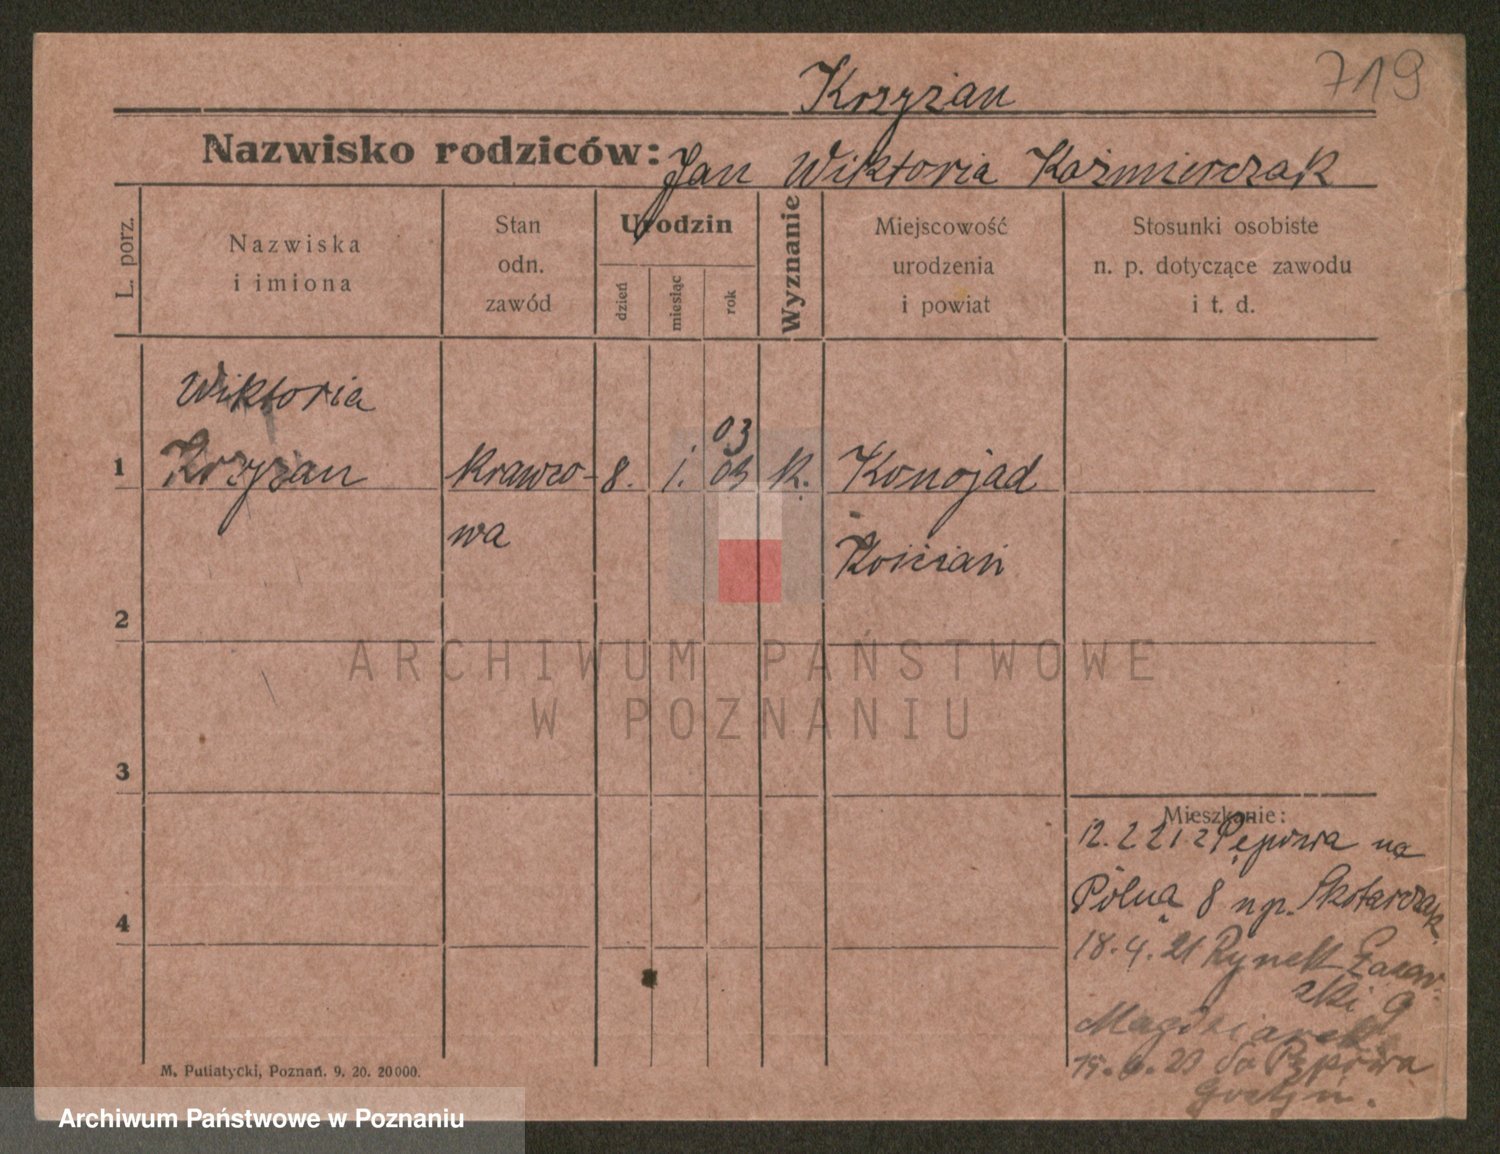 719
Krzyżan
Nazwisko rodziców: Jan Wiktoria Kaźmierczak
L. porz.
Nazwiska
i imiona
Stan
odn.
zawód
Urodzin
dzień
miesiąc
rok
Wyznanie
Miejscowość
urodzenia
i powiat
Stosunki osobiste
n. p. dotyczące zawodu
i t. d.
Wiktoria
03
1 Krzyżan krawco- 8. 1. 03 k. Konojad
wa Kościań
2
3
4
Mieszkanie:
12. 2 21 z Pępowa na
Polną 8 np. Skotarczak.
18. 4. 21 Rynek Łazar-
ski 9
Magdziarek
15. 6. 23 do Pępowa
Gostyń.
M. Putiatycki, Poznań. 9. 20. 20000.
ARCHIWUM PAŃSTWOWE
W POZNANIU
Archiwum Państwowe w Poznaniu